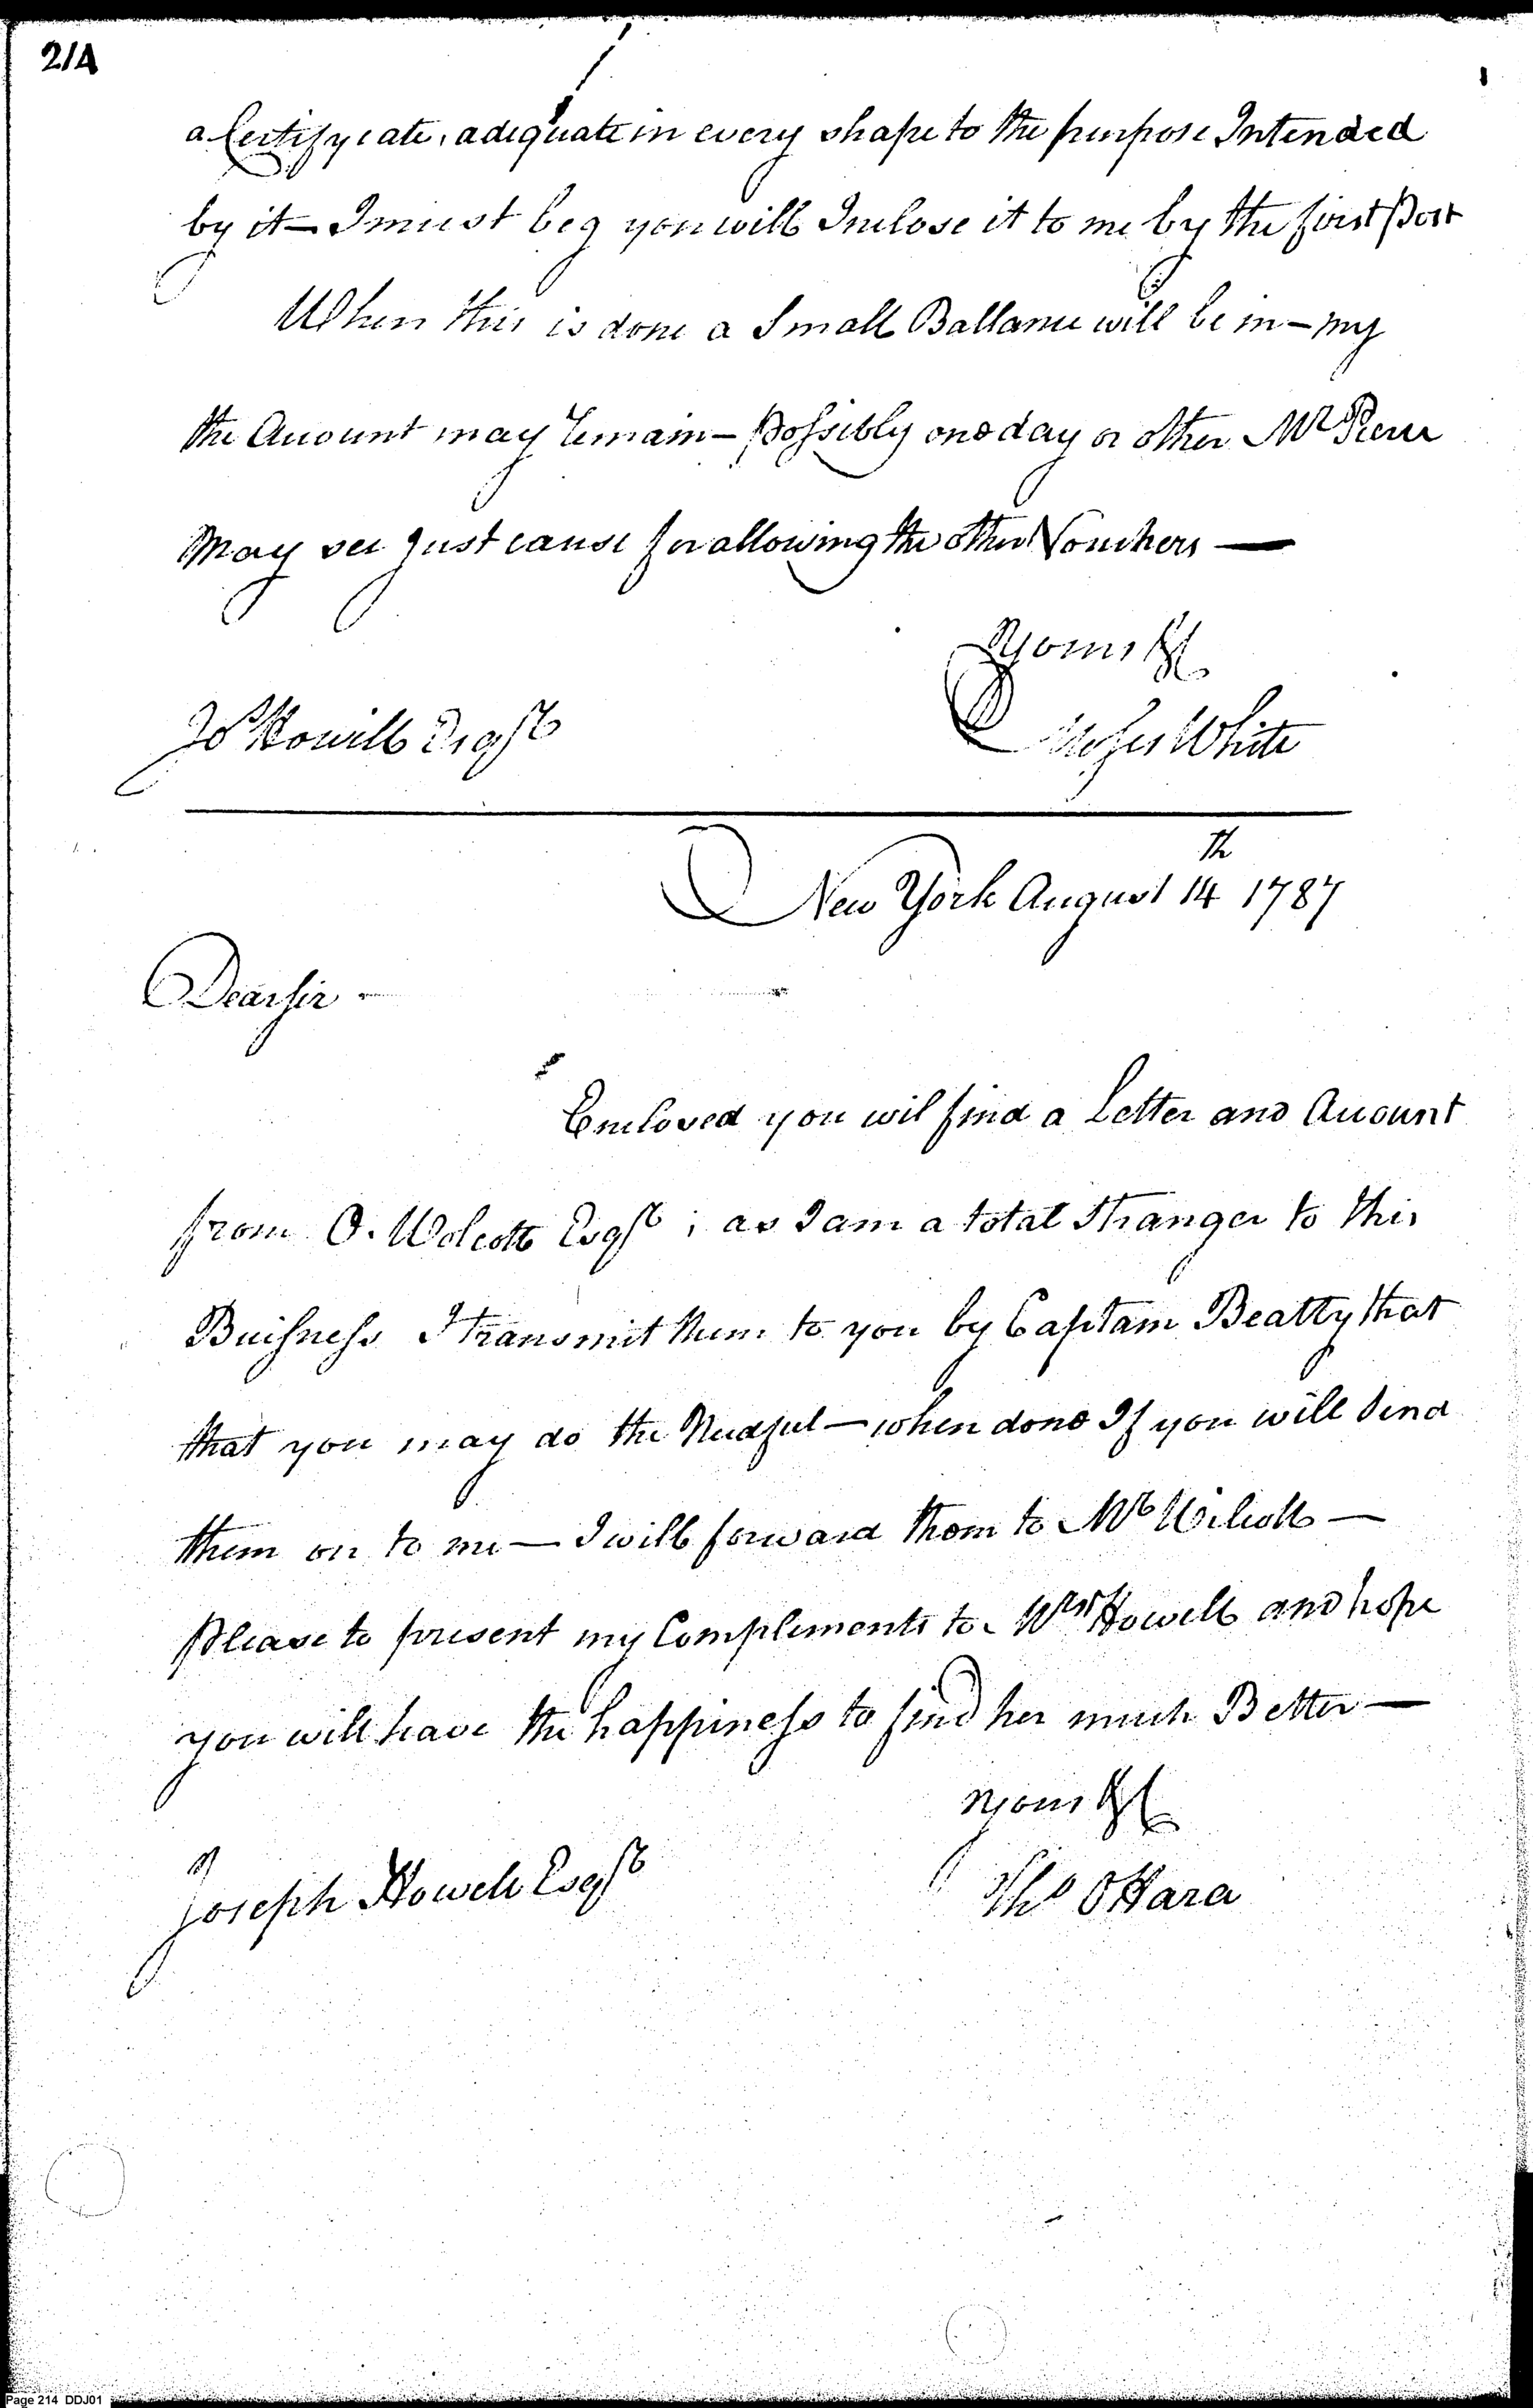 214
a Certifycate, adequate in every shape to the purpose Intended
by it — I must beg you will Inclose it to me by the first Post
When this is done a Small Ballance will be in — my
the Account may remain — Possibly one day or other Mr Pierce
May see Just cause for allowing the other Vouchers —
Yours &c
Jos Howell Esqr
Moses White
New York August 14th 1787
Dear sir
Enclosed you wil find a Letter and Account
from O. Wolcott Esqr ; as I am a total Stranger to this
Buisness I transmit them to you by Captain Beatty that
that you may do the Needful — when done If you will Send
them on to me — I will forward them to Mr Wolcott —
Please to present my Complements to Mrs Howell and hope
you will have the happiness to find her much Better —
Yours &c
Joseph Howell Esqr
Thos OHara
Page 214 DDJ01